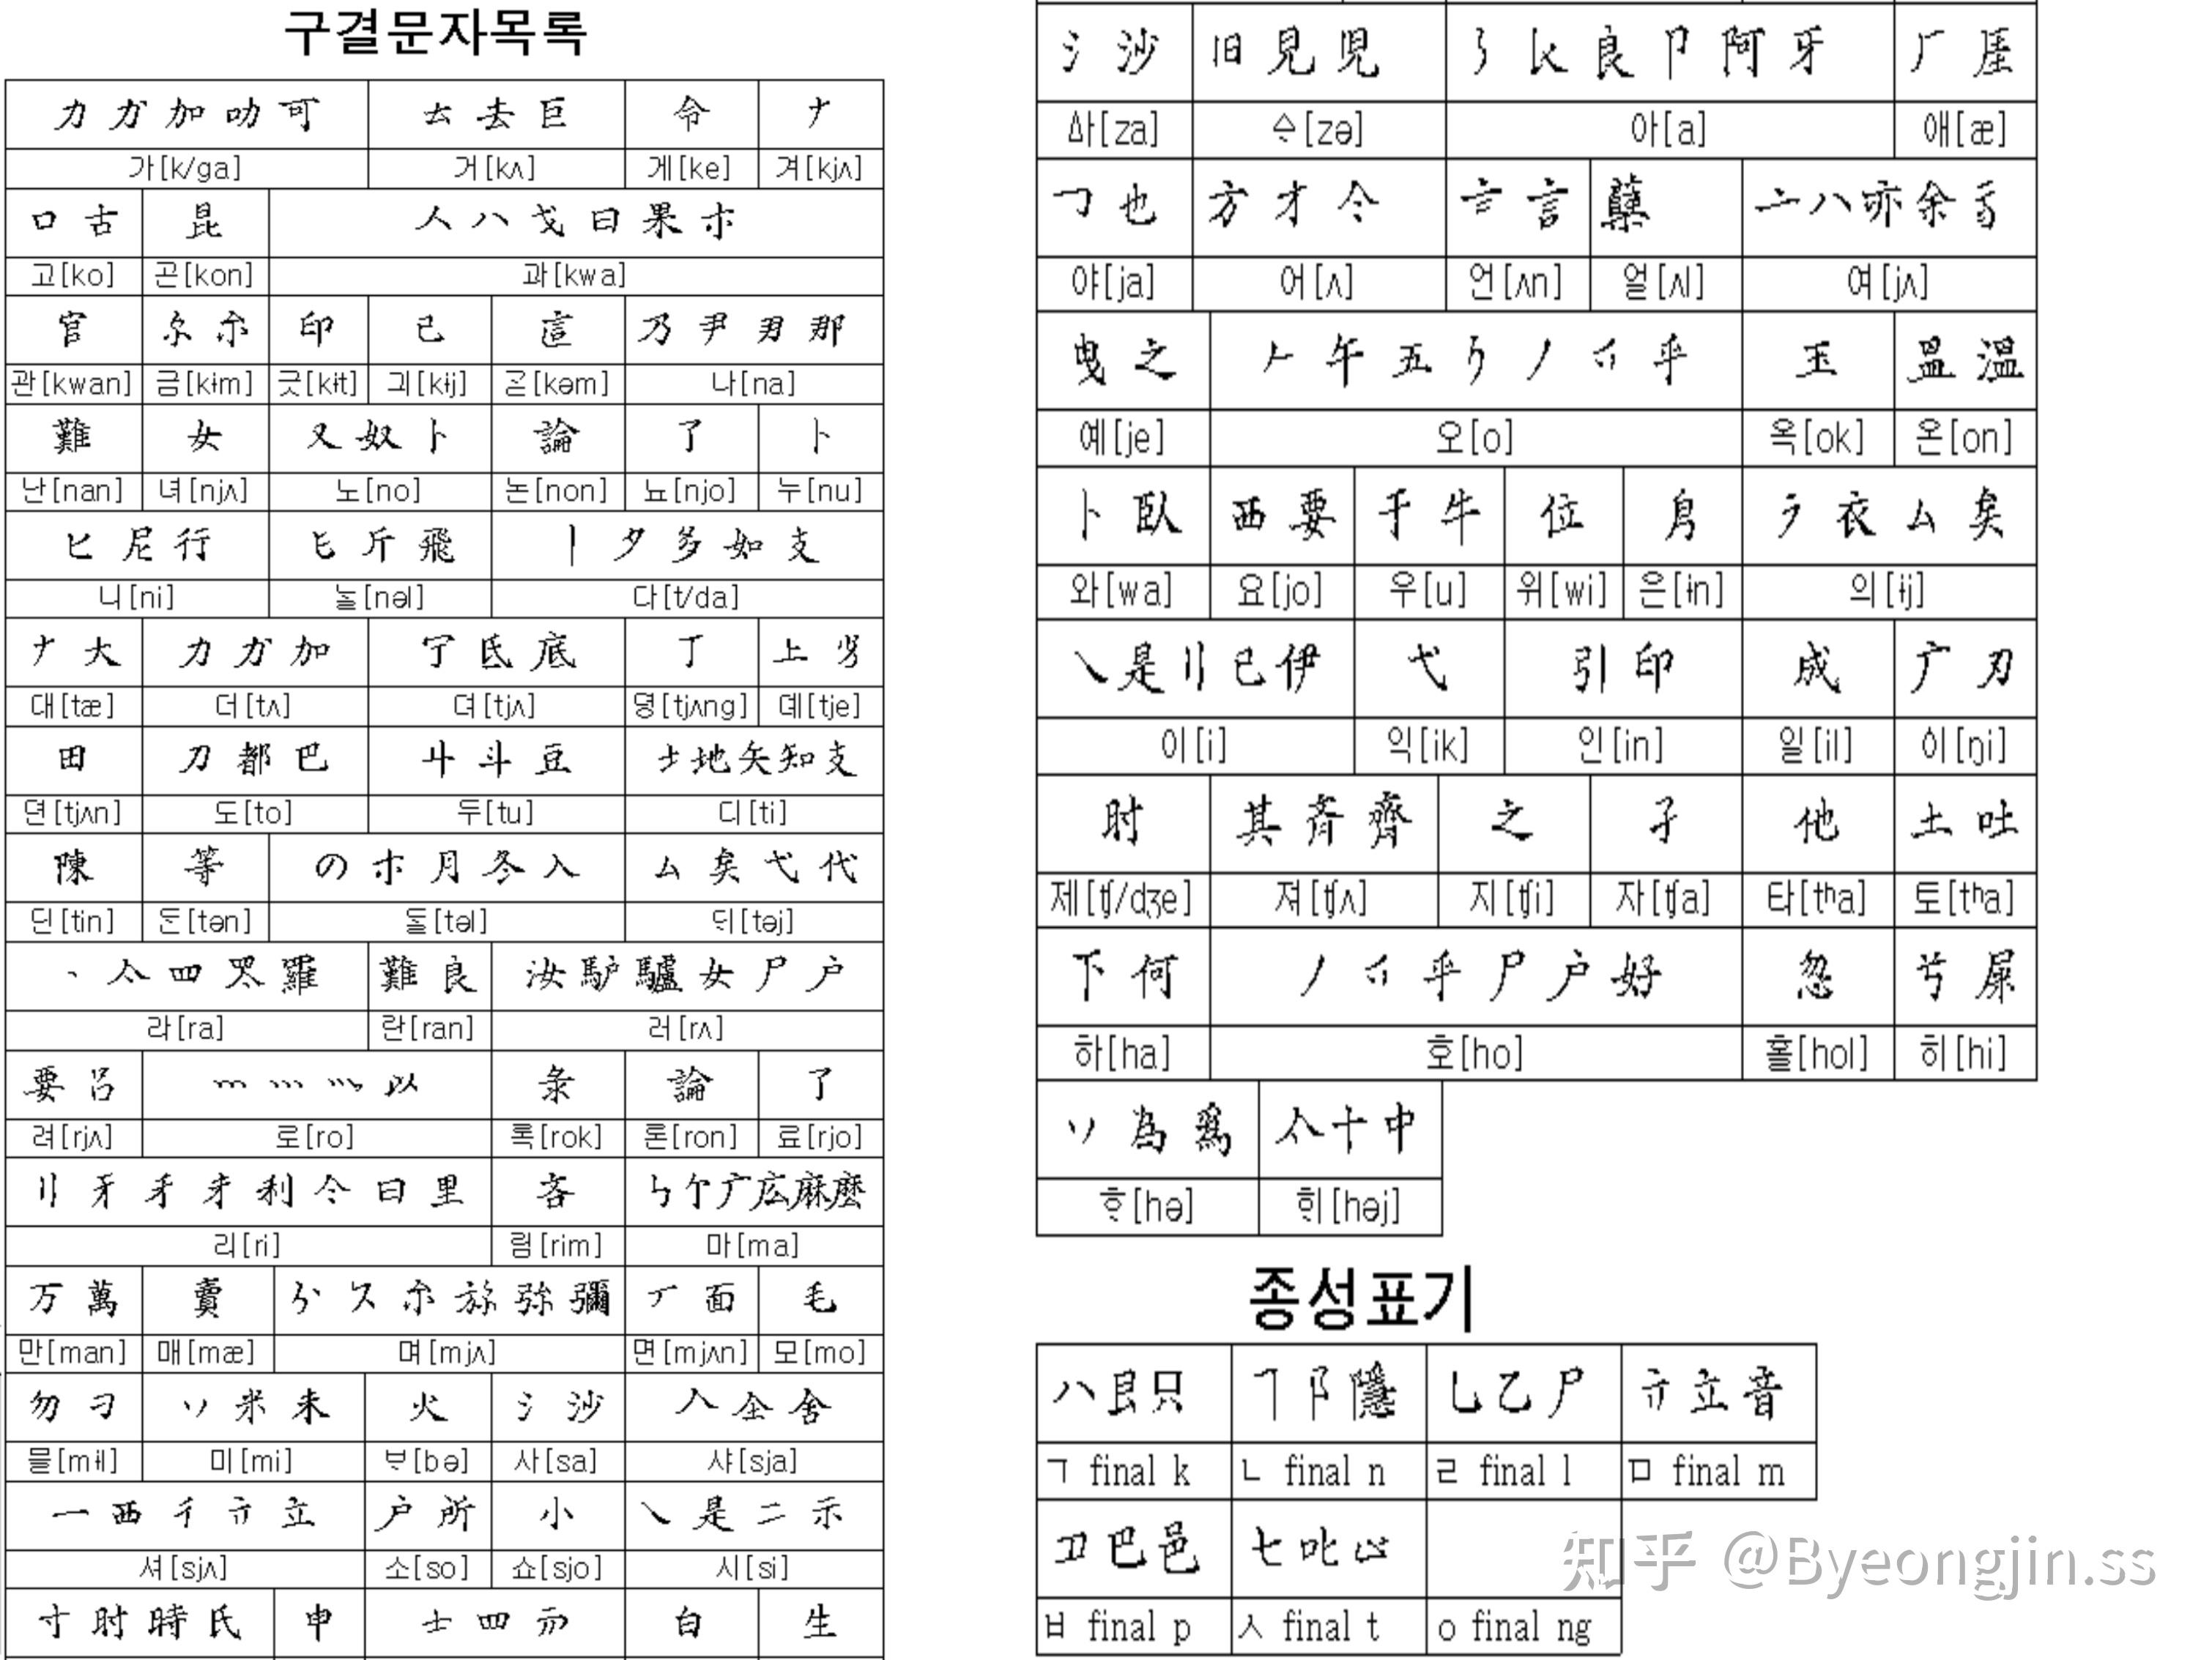 구결문자목록
力 カ 加 叻 可 厺 去 巨 令 ナ
가[k/ga] 거[kʌ] 게[ke] 겨[kjʌ]
口 古 昆 人 ハ 戈 曰 果 朩
고[ko] 곤[kon] 과[kwa]
官 尔 印 己 乃 尹 那
관[kwan] 금[kɨm] 긋[kɨt] 긔[kɨj] ᄀᆞᆷ[kəm] 나[na]
難 女 又 奴 卜 論 了 卜
난[nan] 녀[njʌ] 노[no] 논[non] 뇨[njo] 누[nu]
匕 尼 行 斤 飛 丨 夕 多 如 支
니[ni] ᄂᆞᆯ[nəl] 다[t/da]
ナ 大 力 カ 加 氐 底 丁 上
대[tæ] 더[tʌ] 뎌[tjʌ] 뎡[tjʌng] 뎨[tje]
田 刀 都 巴 斗 豆 地 矢 知 支
뎐[tjʌn] 도[to] 두[tu] 디[ti]
陳 等 の 朩 月 冬 入 ム 矣 弋 代
딘[tin] ᄃᆞᆫ[tən] ᄃᆞᆯ[təl] ᄃᆡ[təj]
丶 亽 四 罖 羅 難 良 汝 馿 驢 女 尸 户
라[ra] 란[ran] 러[rʌ]
要 呂 灬 以 彔 論 了
려[rjʌ] 로[ro] 록[rok] 론[ron] 료[rjo]
刂 牙 利 令 曰 里 吝 広 麻 麼
리[ri] 림[rim] 마[ma]
万 萬 賣 尔 弥 彌 丆 面 毛
만[man] 매[mæ] 며[mjʌ] 면[mjʌn] 모[mo]
勿 刁 米 未 火 氵 沙 亼 仝 舍
믈[mɨl] 미[mi] ᄇᆞ[bə] 사[sa] 샤[sja]
一 西 彳 立 户 所 小 乀 是 二 示
셔[sjʌ] 소[so] 쇼[sjo] 시[si]
寸 时 時 氏 申 士 四 白 生
氵 沙 旧 見 児 良 卩 阿 牙 厂 厓
ᅀᅡ[za] ᅀᆞ[zə] 아[a] 애[æ]
也 方 才 今 言 孽 亠 八 亦 余
야[ja] 어[ʌ] 언[ʌn] 얼[ʌl] 여[jʌ]
曳 之 午 五 丿 乎 玉 昷 溫
예[je] 오[o] 옥[ok] 온[on]
卜 臥 西 要 于 牛 位 衣 ム 矣
와[wa] 요[jo] 우[u] 위[wi] 은[ɨn] 의[ɨj]
乀 是 刂 已 伊 弋 引 印 成 广 刃
이[i] 익[ik] 인[in] 일[il] ᅌᅵ[ŋi]
时 其 斉 齊 之 子 他 土 吐
제[ʧ/dʒe] 져[ʧʌ] 지[ʧi] 자[ʧa] 타[tʰa] 토[tʰa]
下 何 丿 乎 尸 户 好 忽 屎
하[ha] 호[ho] 홀[hol] 히[hi]
丷 為 爲 亽 十 中
ᄒᆞ[hə] ᄒᆡ[həj]
종성표기
ハ 艮 只 阝 隱 乚 乙 尸 立 音
ㄱ final k ㄴ final n ㄹ final l ㅁ final m
巴 邑 七 叱
ㅂ final p ㅅ final t ㅇ final ng
知乎 @Byeongjin.ss